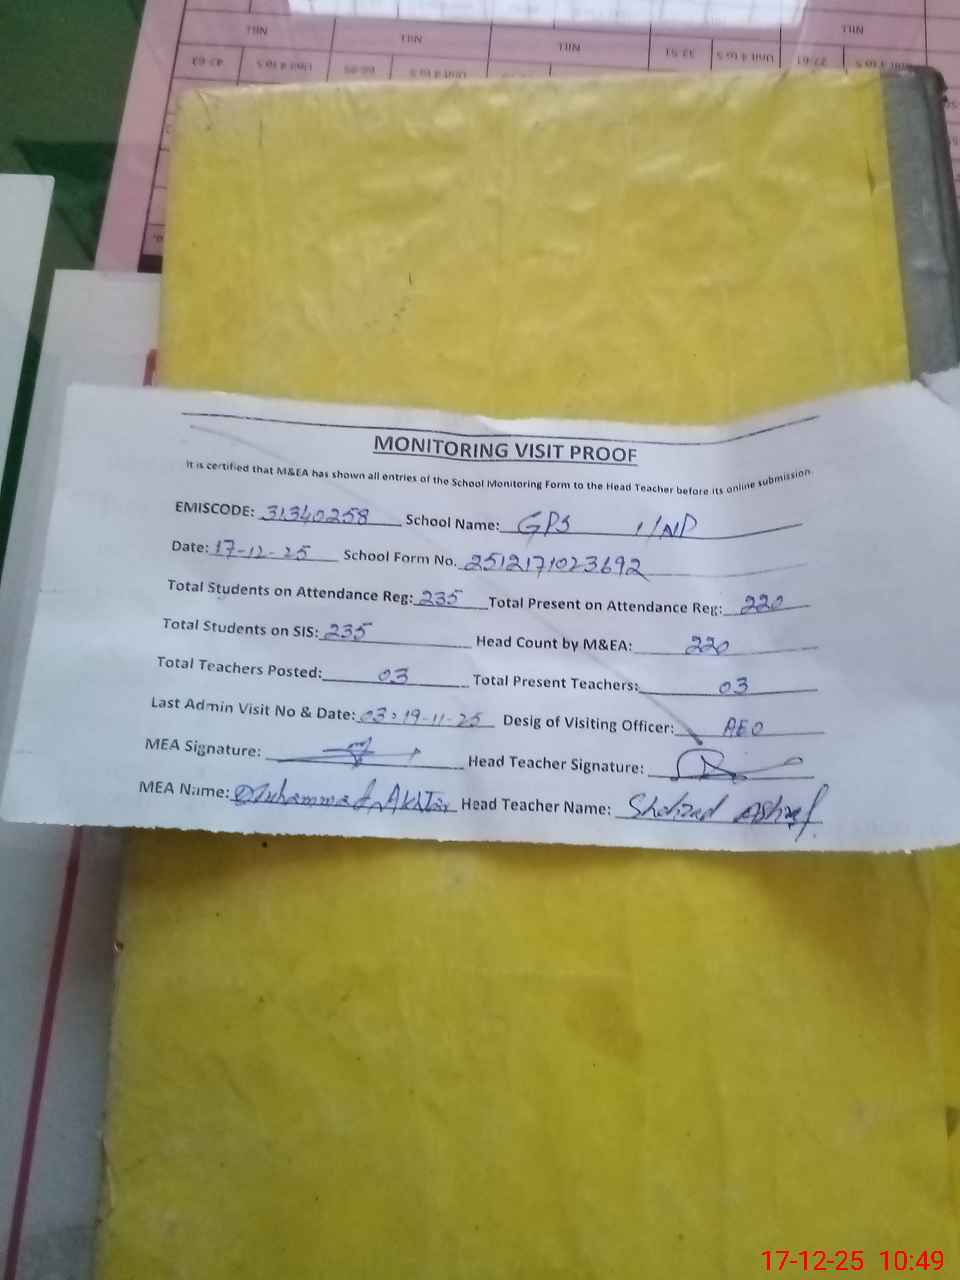 NIL NIL NIL NIL
42-62 Unit 4 to 5 Unit 4 to 5 32-51 Unit 4 to 5 27-61 Unit 4 to 5
MONITORING VISIT PROOF
It is certified that M&EA has shown all entries of the School Monitoring Form to the Head Teacher before its online submission.
EMISCODE: 31340258 School Name: GPS 1/NP
Date: 17-12-25 School Form No. 2512171023692
Total Students on Attendance Reg: 235 Total Present on Attendance Reg: 220
Total Students on SIS: 235 Head Count by M&EA: 220
Total Teachers Posted: 03 Total Present Teachers: 03
Last Admin Visit No & Date: 03, 19-11-25 Desig of Visiting Officer: AEO
MEA Signature: Head Teacher Signature:
MEA Name: Muhammad Akhtar Head Teacher Name: Shahzad Ashraf
17-12-25 10:49